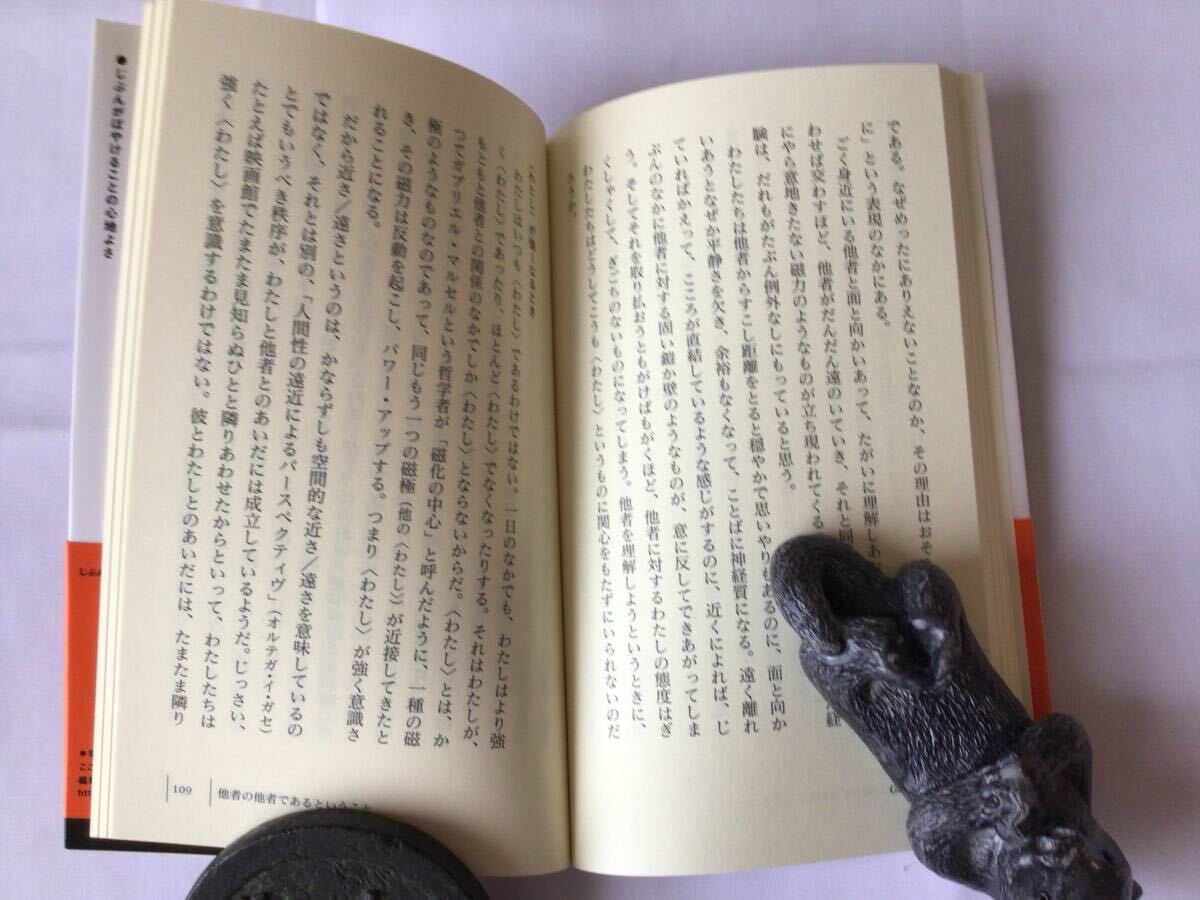 である。なぜめったにありえないことなのか、その理由はおそ
に」という表現のなかにある。
ごく身近にいる他者と面と向かいあって、たがいに理解しあ
わせば交わすほど、他者がだんだん遠のいていき、それと同
にやら意地きたない磁力のようなものが立ち現われてくる
験は、だれもがたぶん例外なしにもっていると思う。
わたしたちは他者からすこし距離をとると穏やかで思いやりもあるのに、面と向か
いあうとなぜか平静さを欠き、余裕もなくなって、ことばに神経質になる。遠く離れ
ていればかえって、こころが直結しているような感じがするのに、近くによれば、じ
ぶんのなかに他者に対する固い鎧か壁のようなものが、意に反してできあがってしま
う。そしてそれを取り払おうともがけばもがくほど、他者に対するわたしの態度はぎ
くしゃくして、ぎごちのないものになってしまう。他者を理解しようというときに、
わたしたちはどうしてこうも〈わたし〉というものに関心をもたずにいられないのだ
ろうか。
〈わたし〉が強くなるとき
わたしはいつも〈わたし〉であるわけではない。一日のなかでも、わたしはより強
く〈わたし〉であったり、ほとんど〈わたし〉でなくなったりする。それはわたしが、
もともと他者との関係のなかでしか〈わたし〉とならないからだ。〈わたし〉とは、か
つてガブリエル・マルセルという哲学者が「磁化の中心」と呼んだように、一種の磁
極のようなものなのであって、同じもう一つの磁極（他の〈わたし〉）が近接してきたと
き、その磁力は反動を起こし、パワー・アップする。つまり〈わたし〉が強く意識さ
れることになる。
だから近さ／遠さというのは、かならずしも空間的な近さ／遠さを意味しているの
ではなく、それとは別の、「人間性の遠近によるパースペクティヴ」（オルテガ・イ・ガセ）
とでもいうべき秩序が、わたしと他者とのあいだには成立しているようだ。じっさい、
たとえば映画館でたまたま見知らぬひとと隣りあわせたからといって、わたしたちは
強く〈わたし〉を意識するわけではない。彼とわたしとのあいだには、たまたま隣り
109
他者の他者であるということ
●じぶんがぼやけることの心地よさ
じぶん